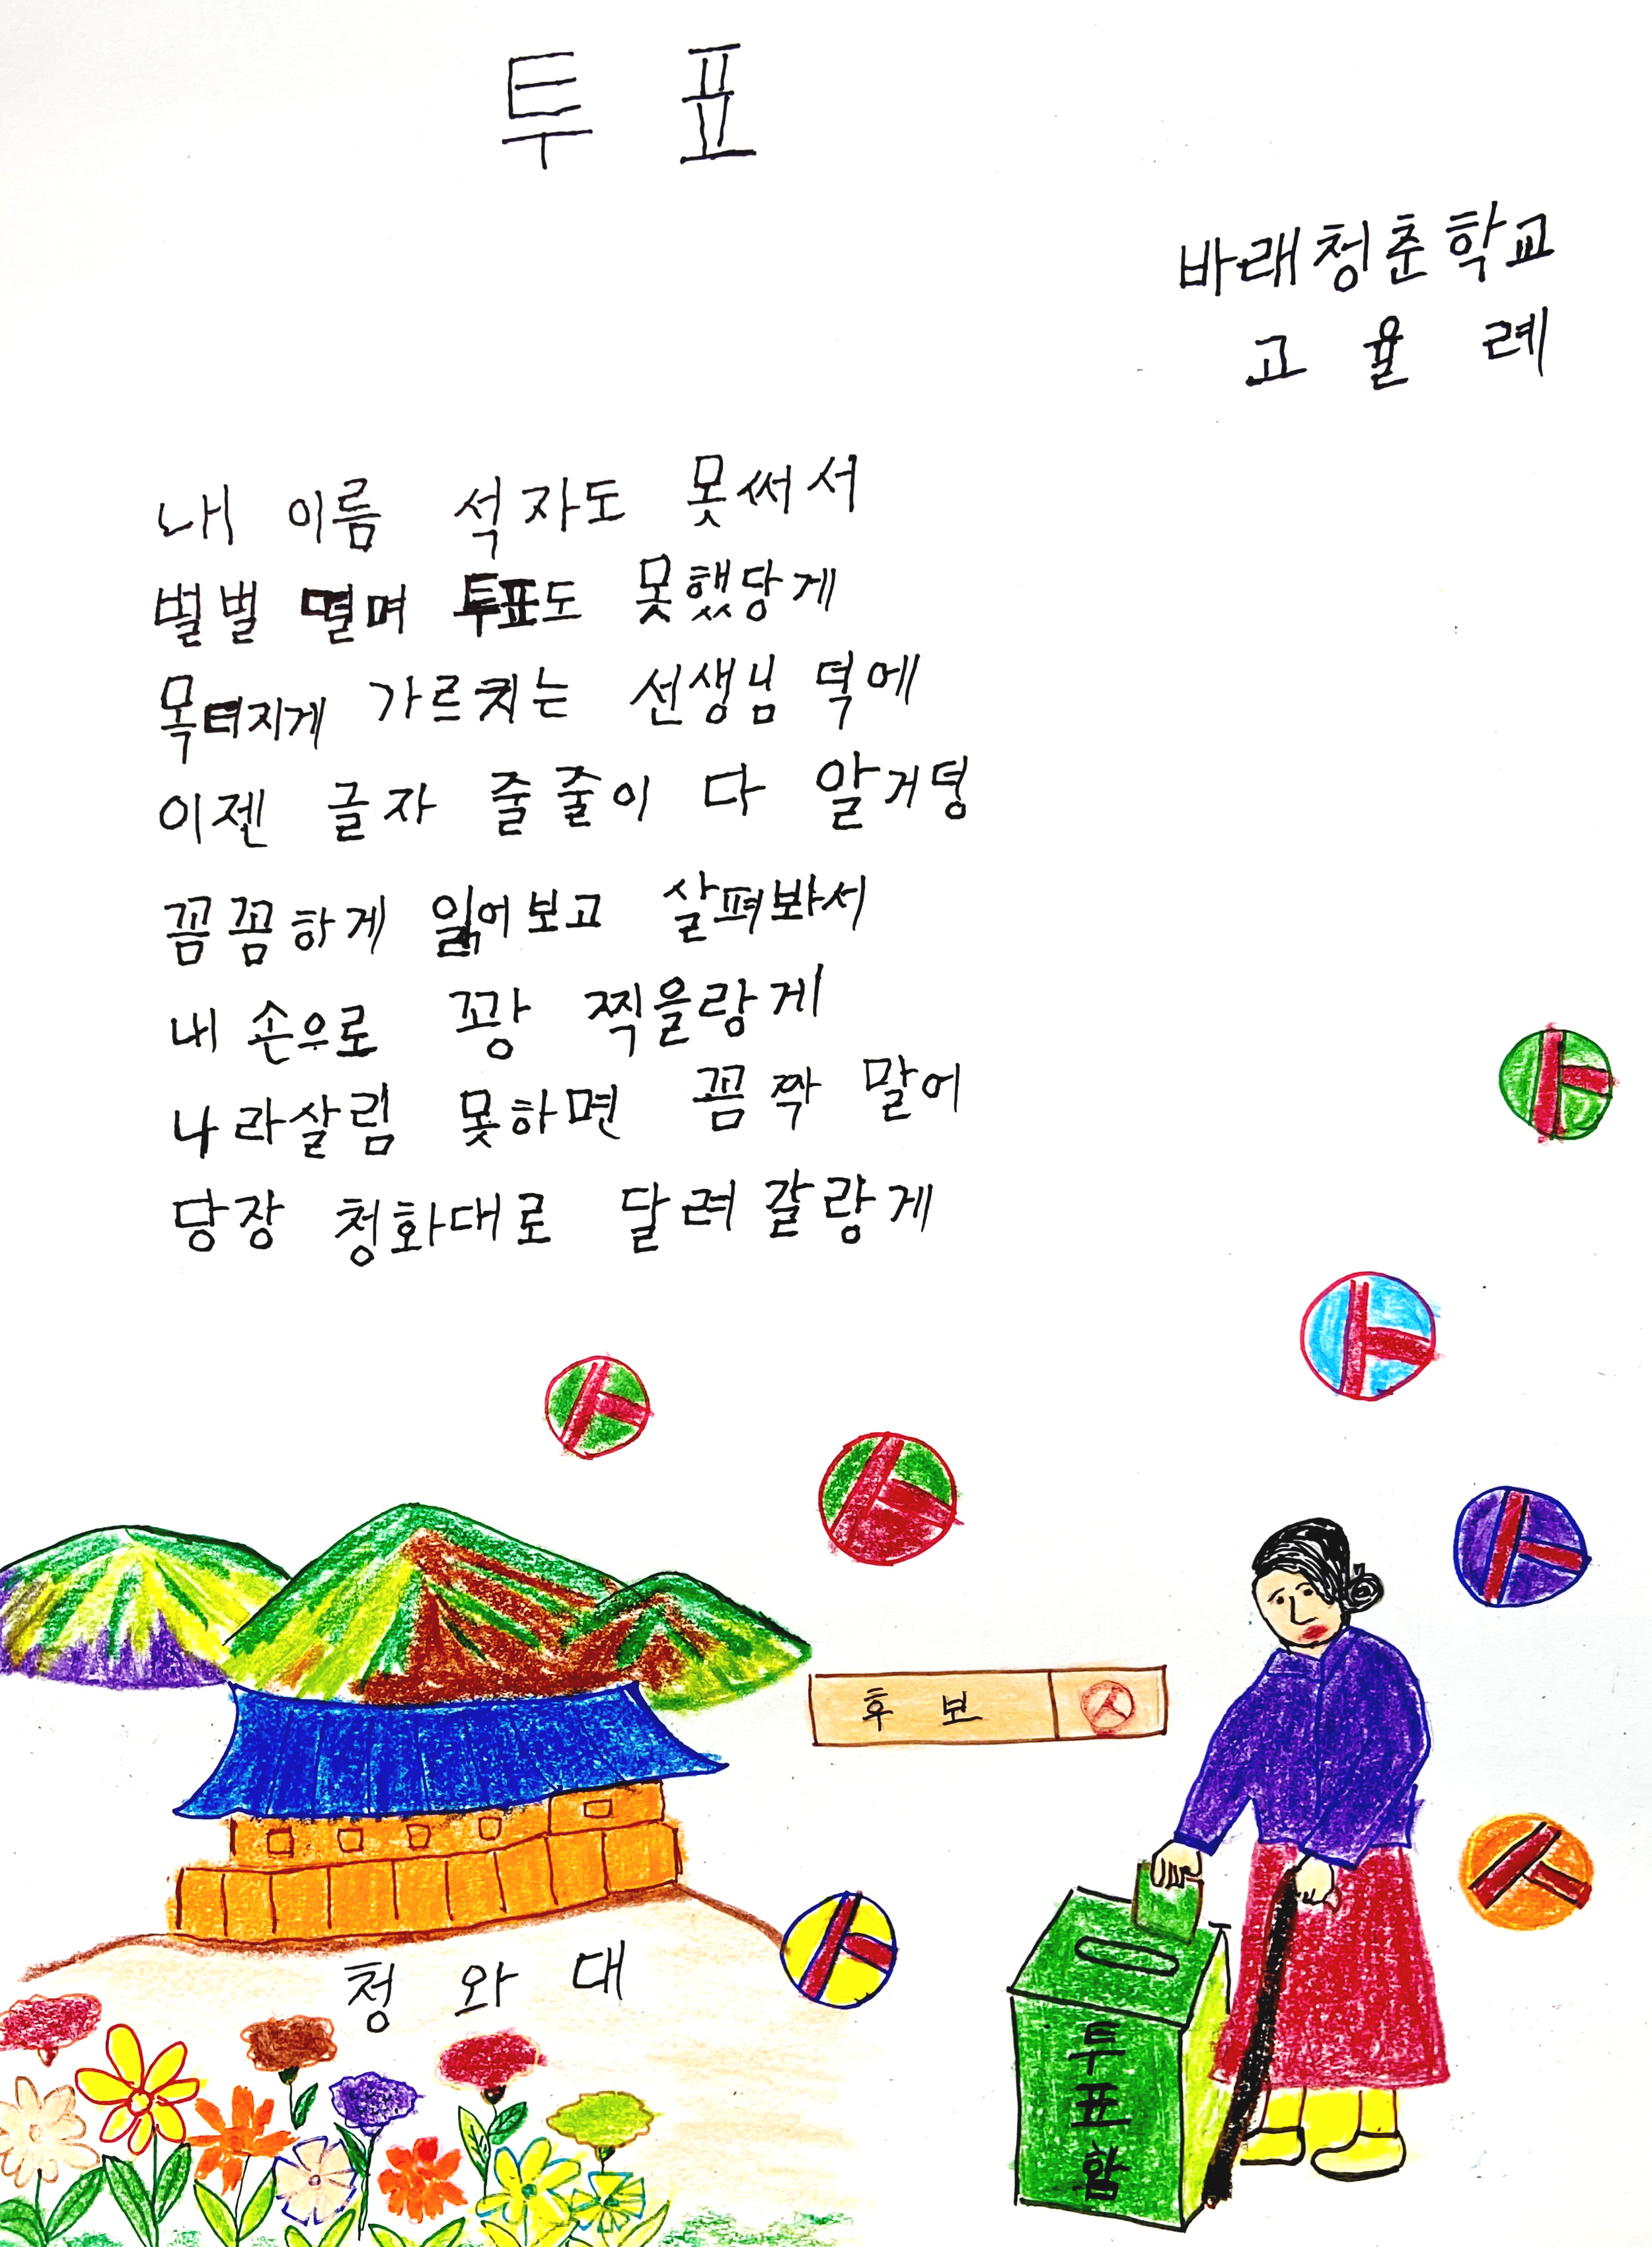 투 표
바래청춘학교
고 율 례
내 이름 석자도 못써서
벌벌 떨며 투표도 못했당게
목터지게 가르치는 선생님 덕에
이젠 글자 줄줄이 다 알거덩
꼼꼼하게 읽어보고 살펴봐서
내 손으로 꽝 찍을랑게
나라살림 못하면 꼼짝 말어
당장 청화대로 달려갈랑게
후 보
청 와 대
투표함